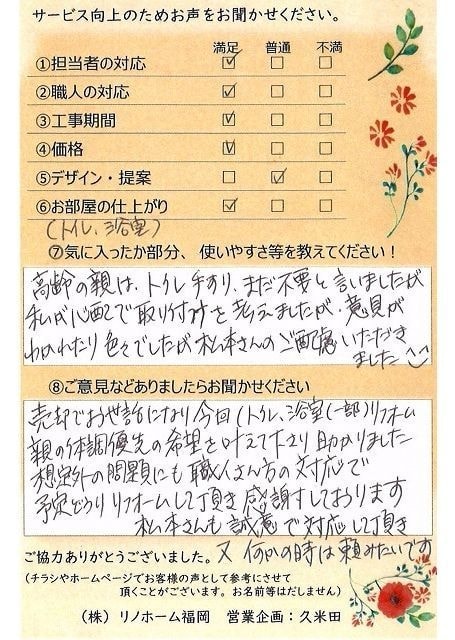 サービス向上のためお声をお聞かせください。
満足 普通 不満
①担当者の対応
②職人の対応
③工事期間
④価格
⑤デザイン・提案
⑥お部屋の仕上がり
(トイレ、浴室)
⑦気に入ったか部分、使いやすさ等を教えてください！
高齢の親は、トイレ手すり、まだ不要と言いましたが
私が心配で取り付けを考えましたが、意見が
わかれたり色々でしたが松本さんのご配慮いただき
ました
⑧ご意見などありましたらお聞かせください
売却でお世話になり今回(トイレ、浴室(一部)リフォーム
親の体調優先の希望を叶えて下さり助かりました
想定外の問題にも職人さん方の対応で
予定どうりリフォームして頂き感謝しております
松本さんも誠意で対応して頂き
又何かの時は頼みたいです
ご協力ありがとうございました。
(チラシやホームページでお客様の声として参考にさせて
頂くことがございます。お名前等はだしません)
(株)リノホーム福岡 営業企画：久米田